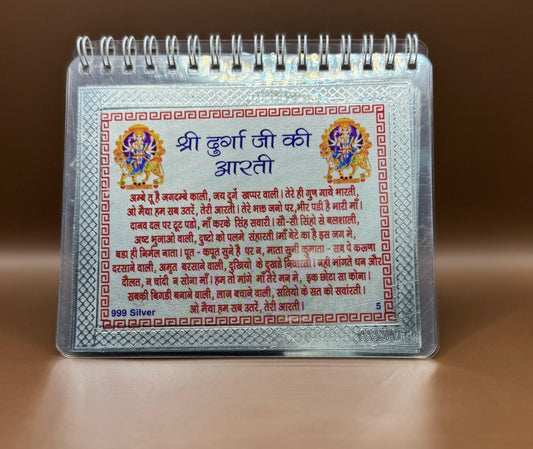 श्री दुर्गा जी की
आरती
अम्बे तू है जगदम्बे काली, जय दुर्गे खप्पर वाली। तेरे ही गुण गाये भारती,
ओ मैया हम सब उतरें, तेरी आरती। तेरे भक्त जनो पर, भीर पडी है भारी माँ।
दानव दल पर टूट पडो, माँ करके सिंह सवारी। सौ-सौ सिंहो से बलशाली,
अष्ट भुजाओ वाली, दुष्टो को पलमे संहारती। माँ बेटे का है इस जग मे,
बडा ही निर्मल नाता। पूत - कपूत सुने है पर न, माता सुनी कुमाता - सब पे करूणा
दरसाने वाली, अमृत बरसाने वाली, दुखियो के दुखडे निवारती। नही मांगते धन और
दौलत, न चांदी न सोना माँ। हम तो मांगे माँ तेरे मन मे, इक छोटा सा कोना।
सबकी बिगडी बनाने वाली, लाज बचाने वाली, सतियो के सत को सवांरती।
ओ मैया हम सब उतरें, तेरी आरती।
999 Silver 5